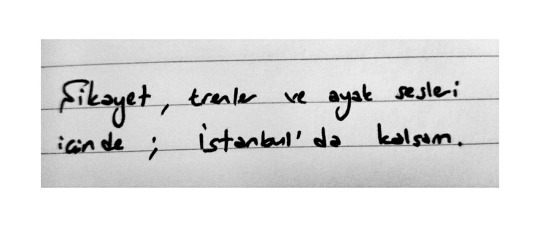 Şikayet, trenler ve ayak sesleri
içinde ; İstanbul'da kalsam.